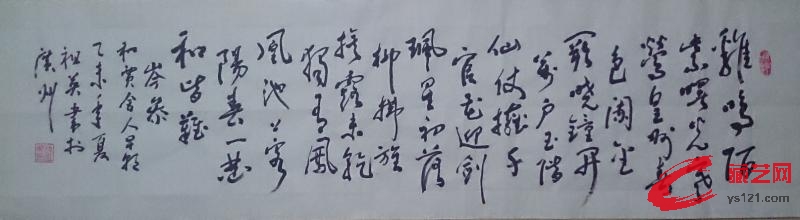 雞鳴陌
紫曙光寒
鶯皇州春
色闌金
闕曉鐘開
萬戶玉階
仙仗擁千
官花迎劍
珮星初落
柳拂旌
旗露未乾
獨有鳳
凰池上客
陽春一曲
和皆難
岑參
和賈舍人早朝
乙未年夏
祖英書於
廣州
藏艺网
ys121.com